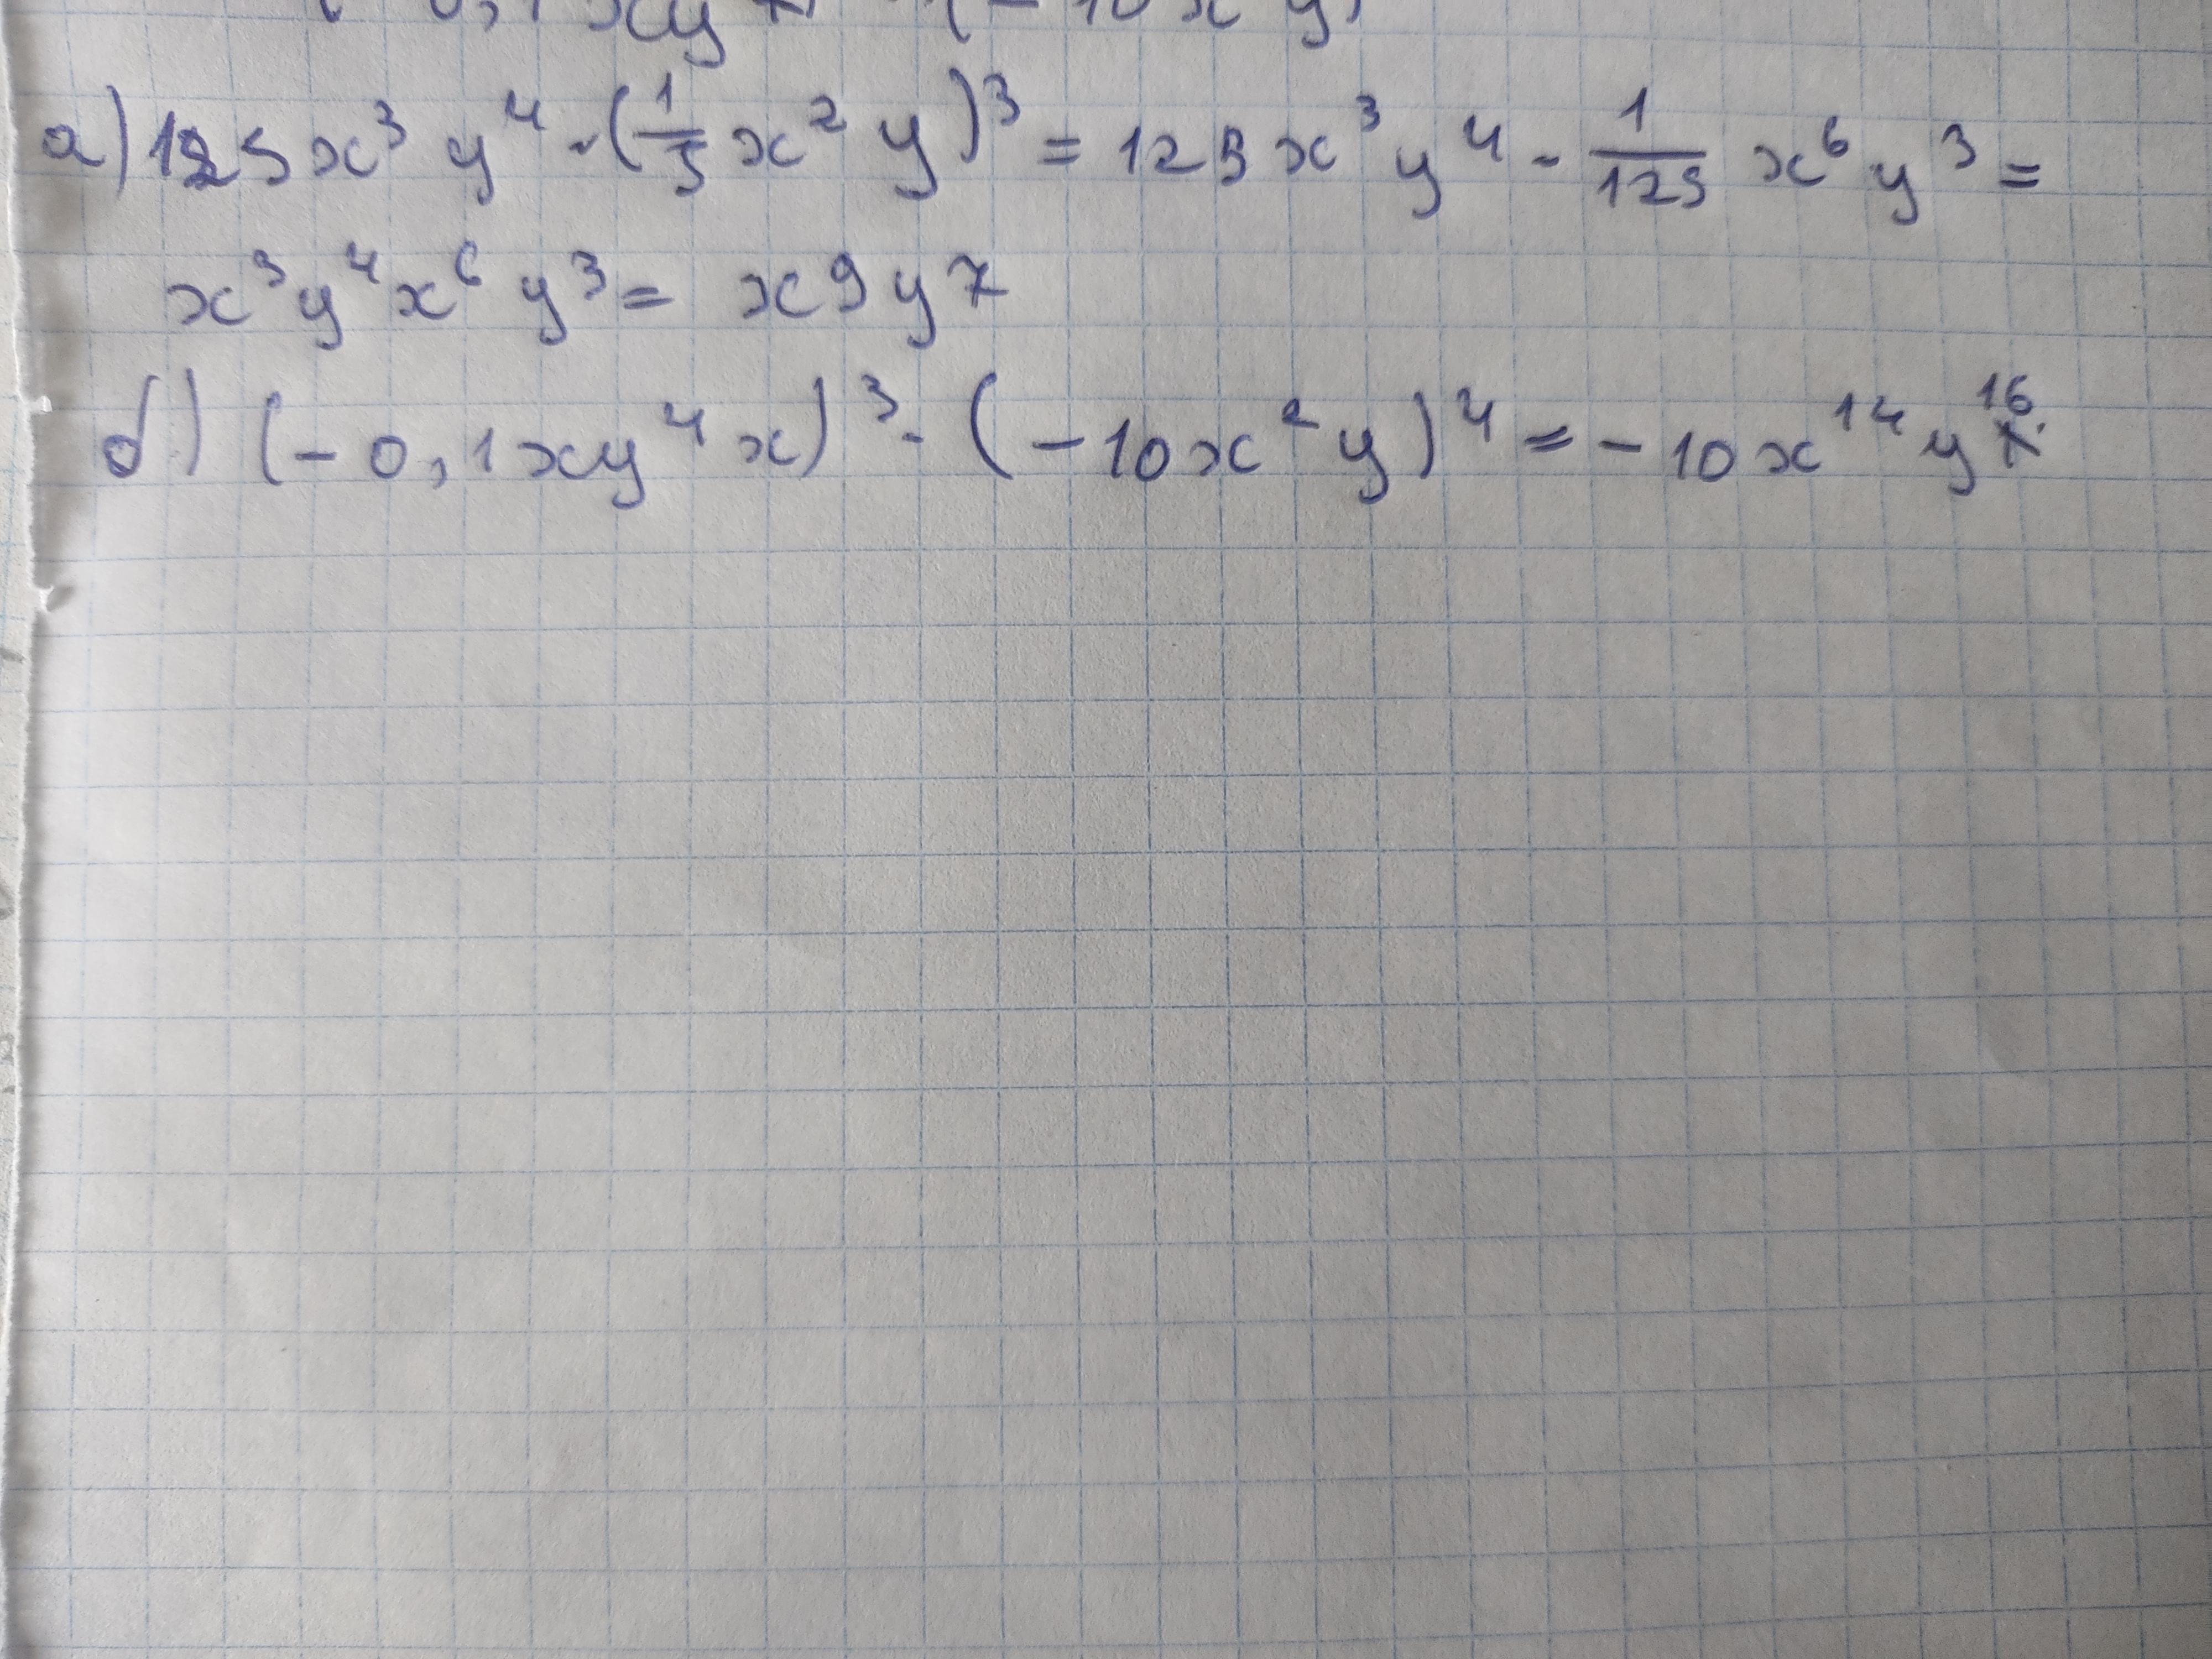 а) 125x³ y⁴ · (1/5 x² y)³ = 125x³y⁴ · 1/125 x⁶y³ =
x³y⁴x⁶y³ = x9y7
б) (-0,1xy⁴x)³ · (-10x²y)⁴ = -10x¹⁴y¹⁶